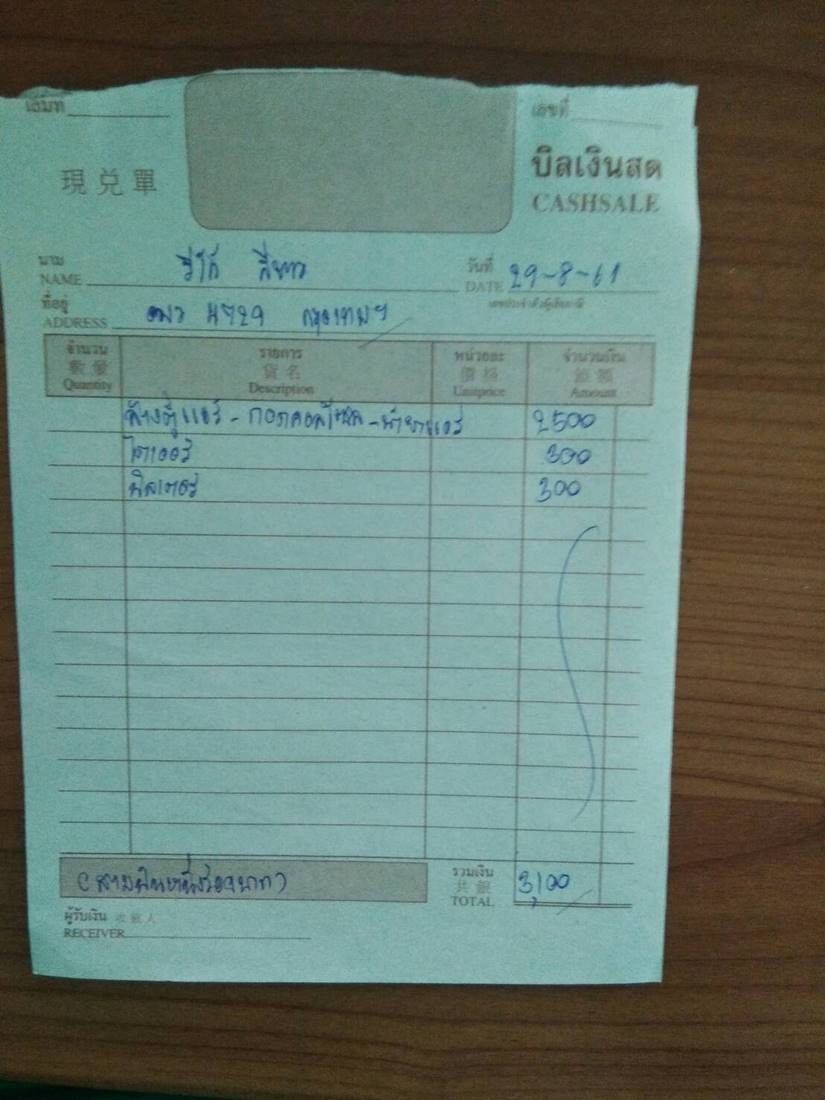 เล่มที่ เลขที่
現兑單 บิลเงินสด
CASHSALE
นาม วีโก้ สีขาว วันที่ 29-8-61
NAME DATE
ที่อยู่ 4729 กรุงเทพฯ เลขประจำตัวผู้เสียภาษี
ADDRESS
จำนวน รายการ หน่วยละ จำนวนเงิน
數量 貨名 價格 銀額
Quantity Description Unitprice Amount
ล้างตู้แอร์ - ถอดคอล์โซล - น้ำยาแอร์ 2500
ไดเออร์ 300
ฟิลเตอร์ 300
(สามพันหนึ่งร้อยบาท) รวมเงิน 3,100
共銀
TOTAL
ผู้รับเงิน 收銀人
RECEIVER